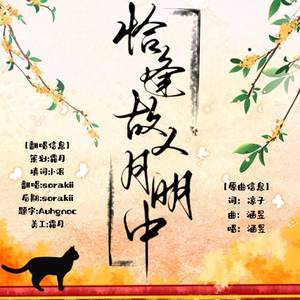 恰逢故人月明中
【翻唱信息】
策划:霜月
填词:小浓
翻唱:sorakii
后期:sorakii
题字:Auhgnoc
美工:霜月
【原曲信息】
词: 凉子
曲: 涵昱
唱: 涵昱